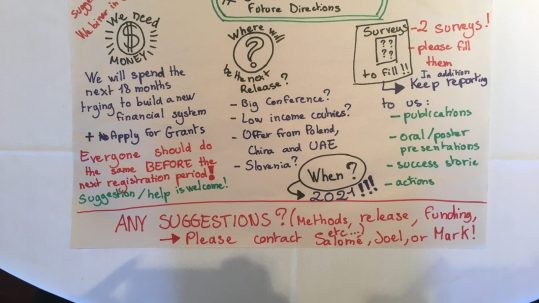 Sugge
Webinar in
Future Directions
We need
$
MONEY!
We will spend the
next 18 months
trying to build a new
financial system
+ Apply for Grants
Everyone should do
the same BEFORE the
next registration period!
Suggestion/help is welcome!
Where will
?
be the next
Release?
- Big Conference?
- Low income coutries?
- Offer from Poland,
China and UAE
- Slovenia?
When?
2021!!!
Surveys
??
??
to fill!!
- 2 surveys!
- please fill
them
In addition
Keep reporting
to us:
- publications
- oral/poster
presentations
- success storie
- actions
ANY SUGGESTIONS? (Methods, release, funding,
etc...)
→ Please contact Salomé, Joel, or Mark!